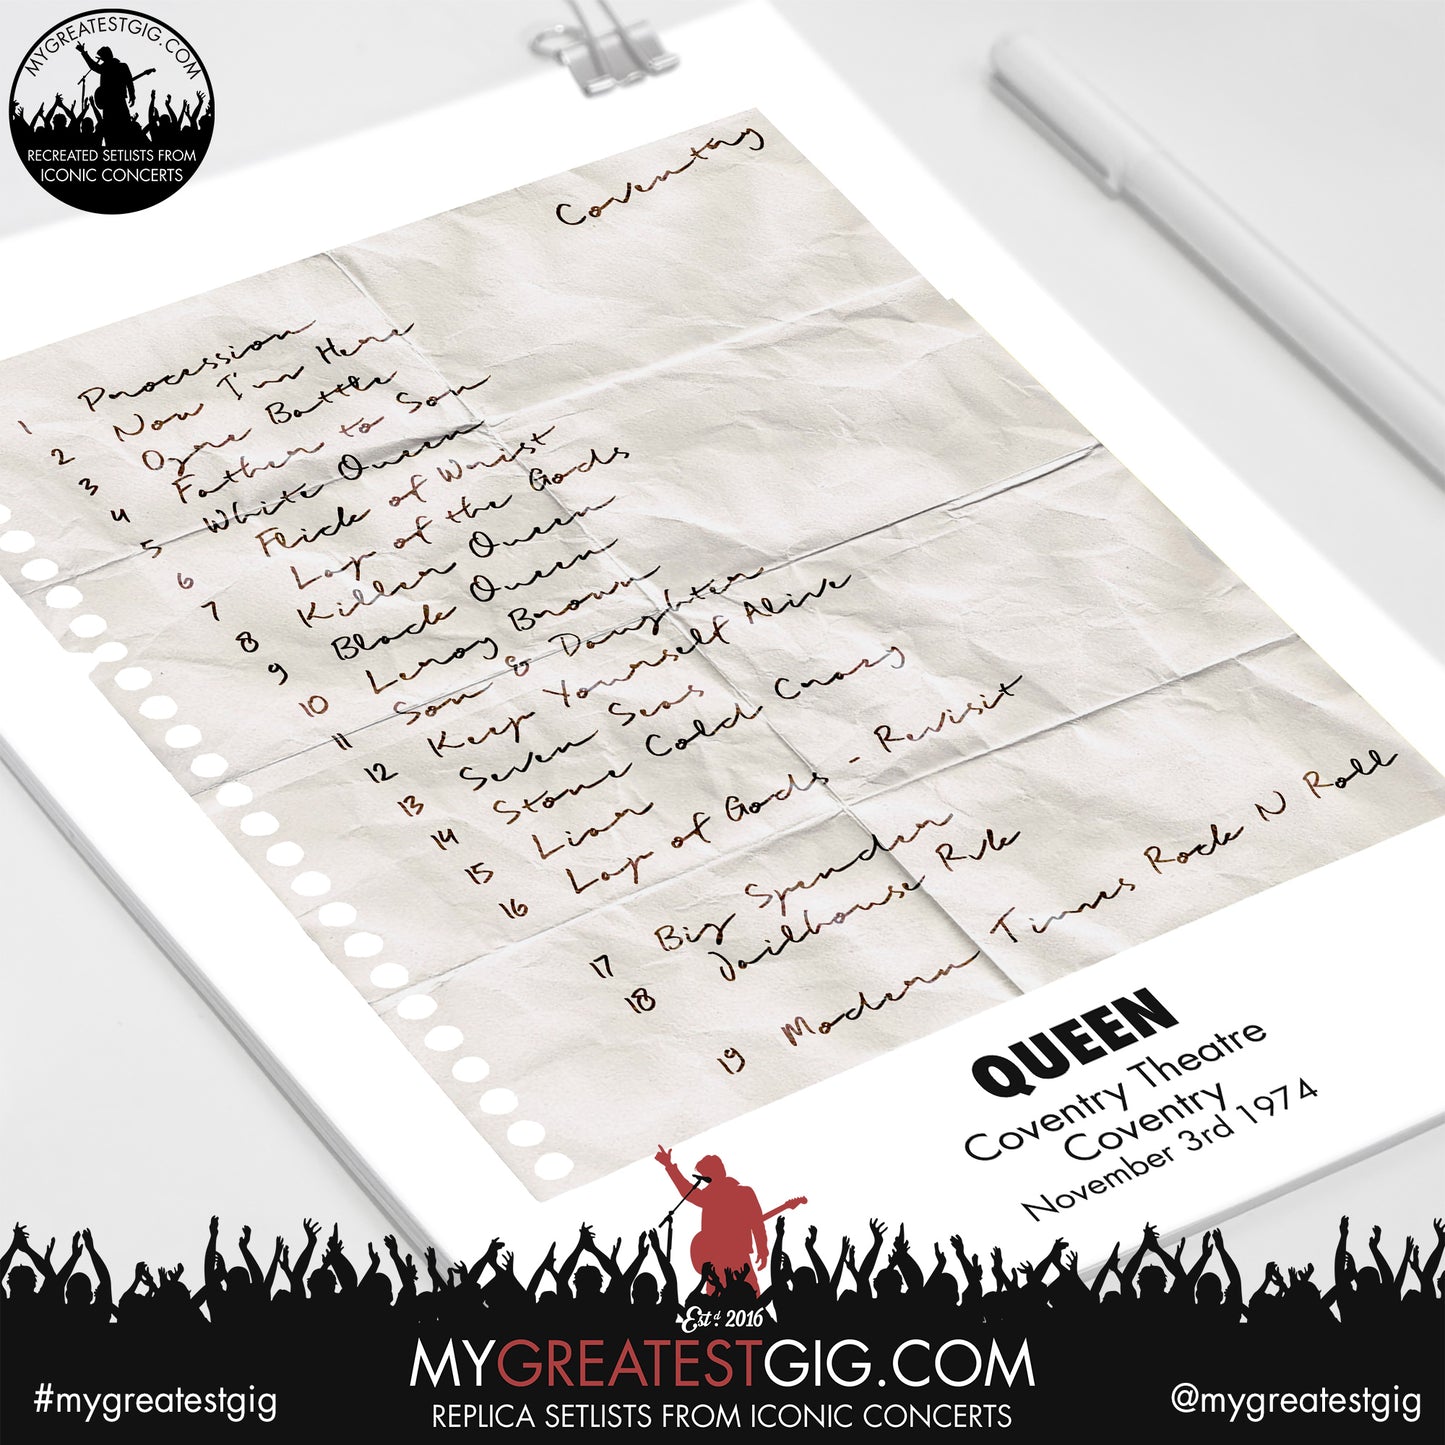 MYGREATESTGIG.COM
RECREATED SETLISTS FROM
ICONIC CONCERTS
Coventry
1 Procession
2 Now I'm Here
3 Ogre Battle
4 Father to Son
5 White Queen
6 Flick of Wrist
7 Lap of the Gods
8 Killer Queen
9 Black Queen
10 Leroy Brown
11 Son & Daughter
12 Keep Yourself Alive
13 Seven Seas
14 Stone Cold Crazy
15 Liar
16 Lap of Gods - Revisit
17 Big Spender
18 Jailhouse Rvk
19 Modern Times Rock N Roll
QUEEN
Coventry Theatre
Coventry
November 3rd 1974
Estd. 2016
MYGREATESTGIG.COM
#mygreatestgig
@mygreatestgig
REPLICA SETLISTS FROM ICONIC CONCERTS